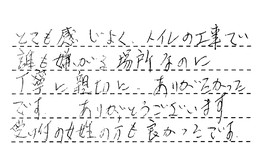 とても感じよく、トイレの工事でい
誰も嫌がる場所なのに
丁寧に親切に、ありがたかった
です　ありがとうございます
受け付の女性の方も良かったです。